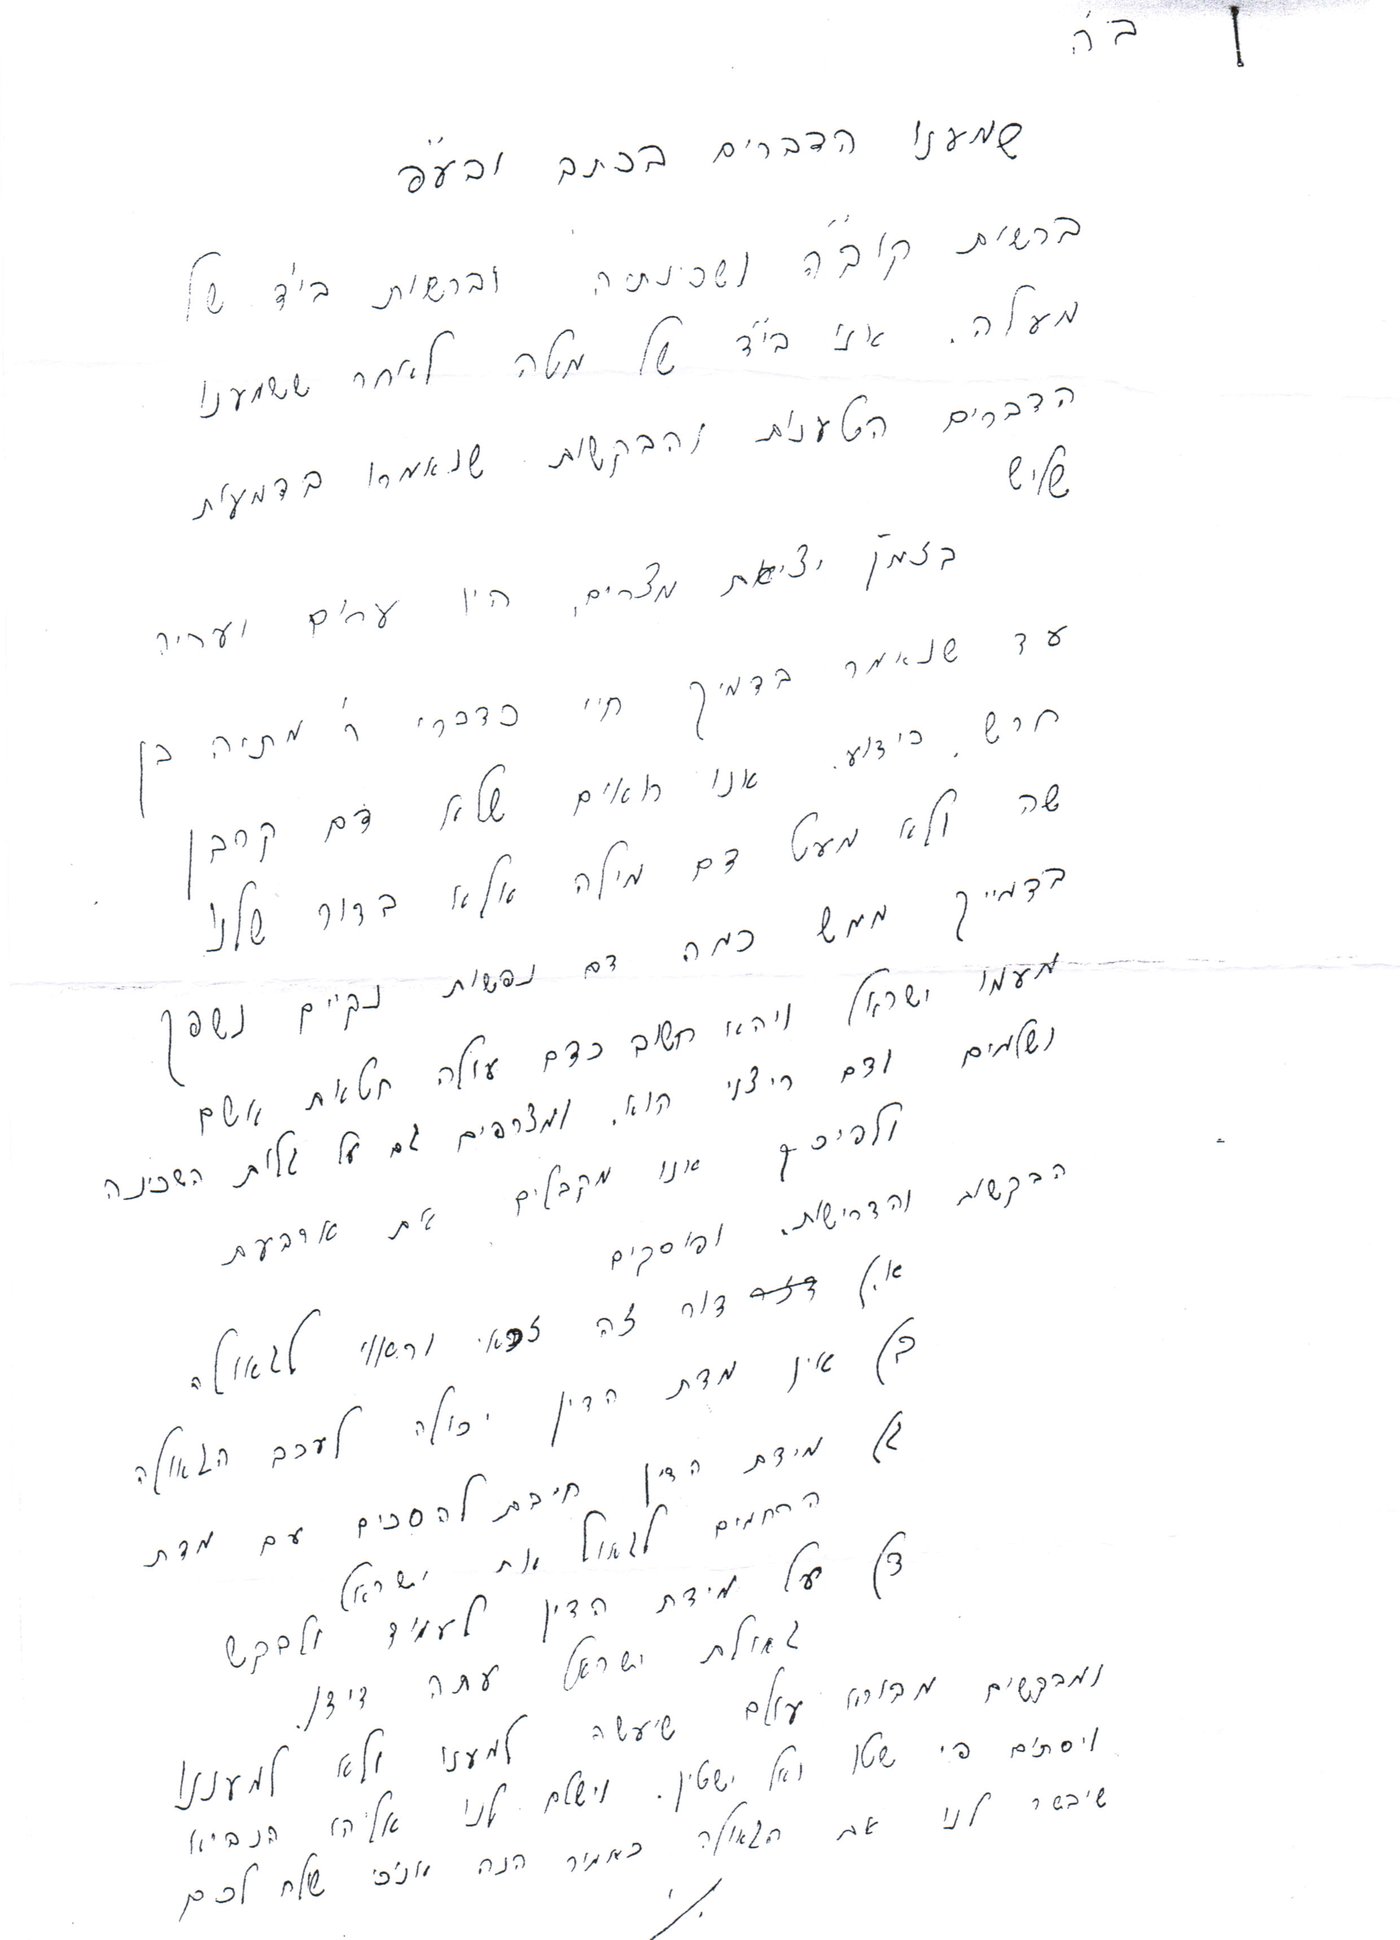 ב"ה
שמענו הדברים בכתב ובע"פ
ברשות קוב"ה ושכינתיה וברשות בי"ד של
מעלה. אנו בי"ד של מטה לאחר ששמענו
הדברים הטענות והבקשות שנאמרו בדמעות
שליש
בזמן יציאת מצרים, היו ערום ועריה
עד שנאמר בדמיך חיי כדברי ר' מתיה בן
חרש. כידוע. אנו רואים שלא דם קרבן
שה ולא מעט דם מילה אלא בדור שלנו
בדמייך ממש כמה דם נפשות נקיים נשפך
מעמו ישראל ויהא חשוב כדם עולה חטאת אשם
ושלמים ודם ריצוי הוא. ומצרפים גם על גלות השכינה
ולפיכך אנו מקבלים את ארבעת
הבקשות והדרישות. ופוסקים
א.) דור זה זכאי וראוי לגאולה
ב) אין מדת הדין יכולה לעכב הגאולה
ג) מידת הדין חיבת להסכים עם מדת
הרחמים לגאול את ישראל
ד) על מידת הדין לעמוד ולבקש
גאולת ישראל עתה דידן.
ומבקשים מבורא עולם שיעשה למענו ולא למעננו
ויסתום פי שטן ואל ישטין. וישלח לנו אליהו הנביא
שיבשר לנו את הגאולה כאמור הנה אנוכי שלח לכם